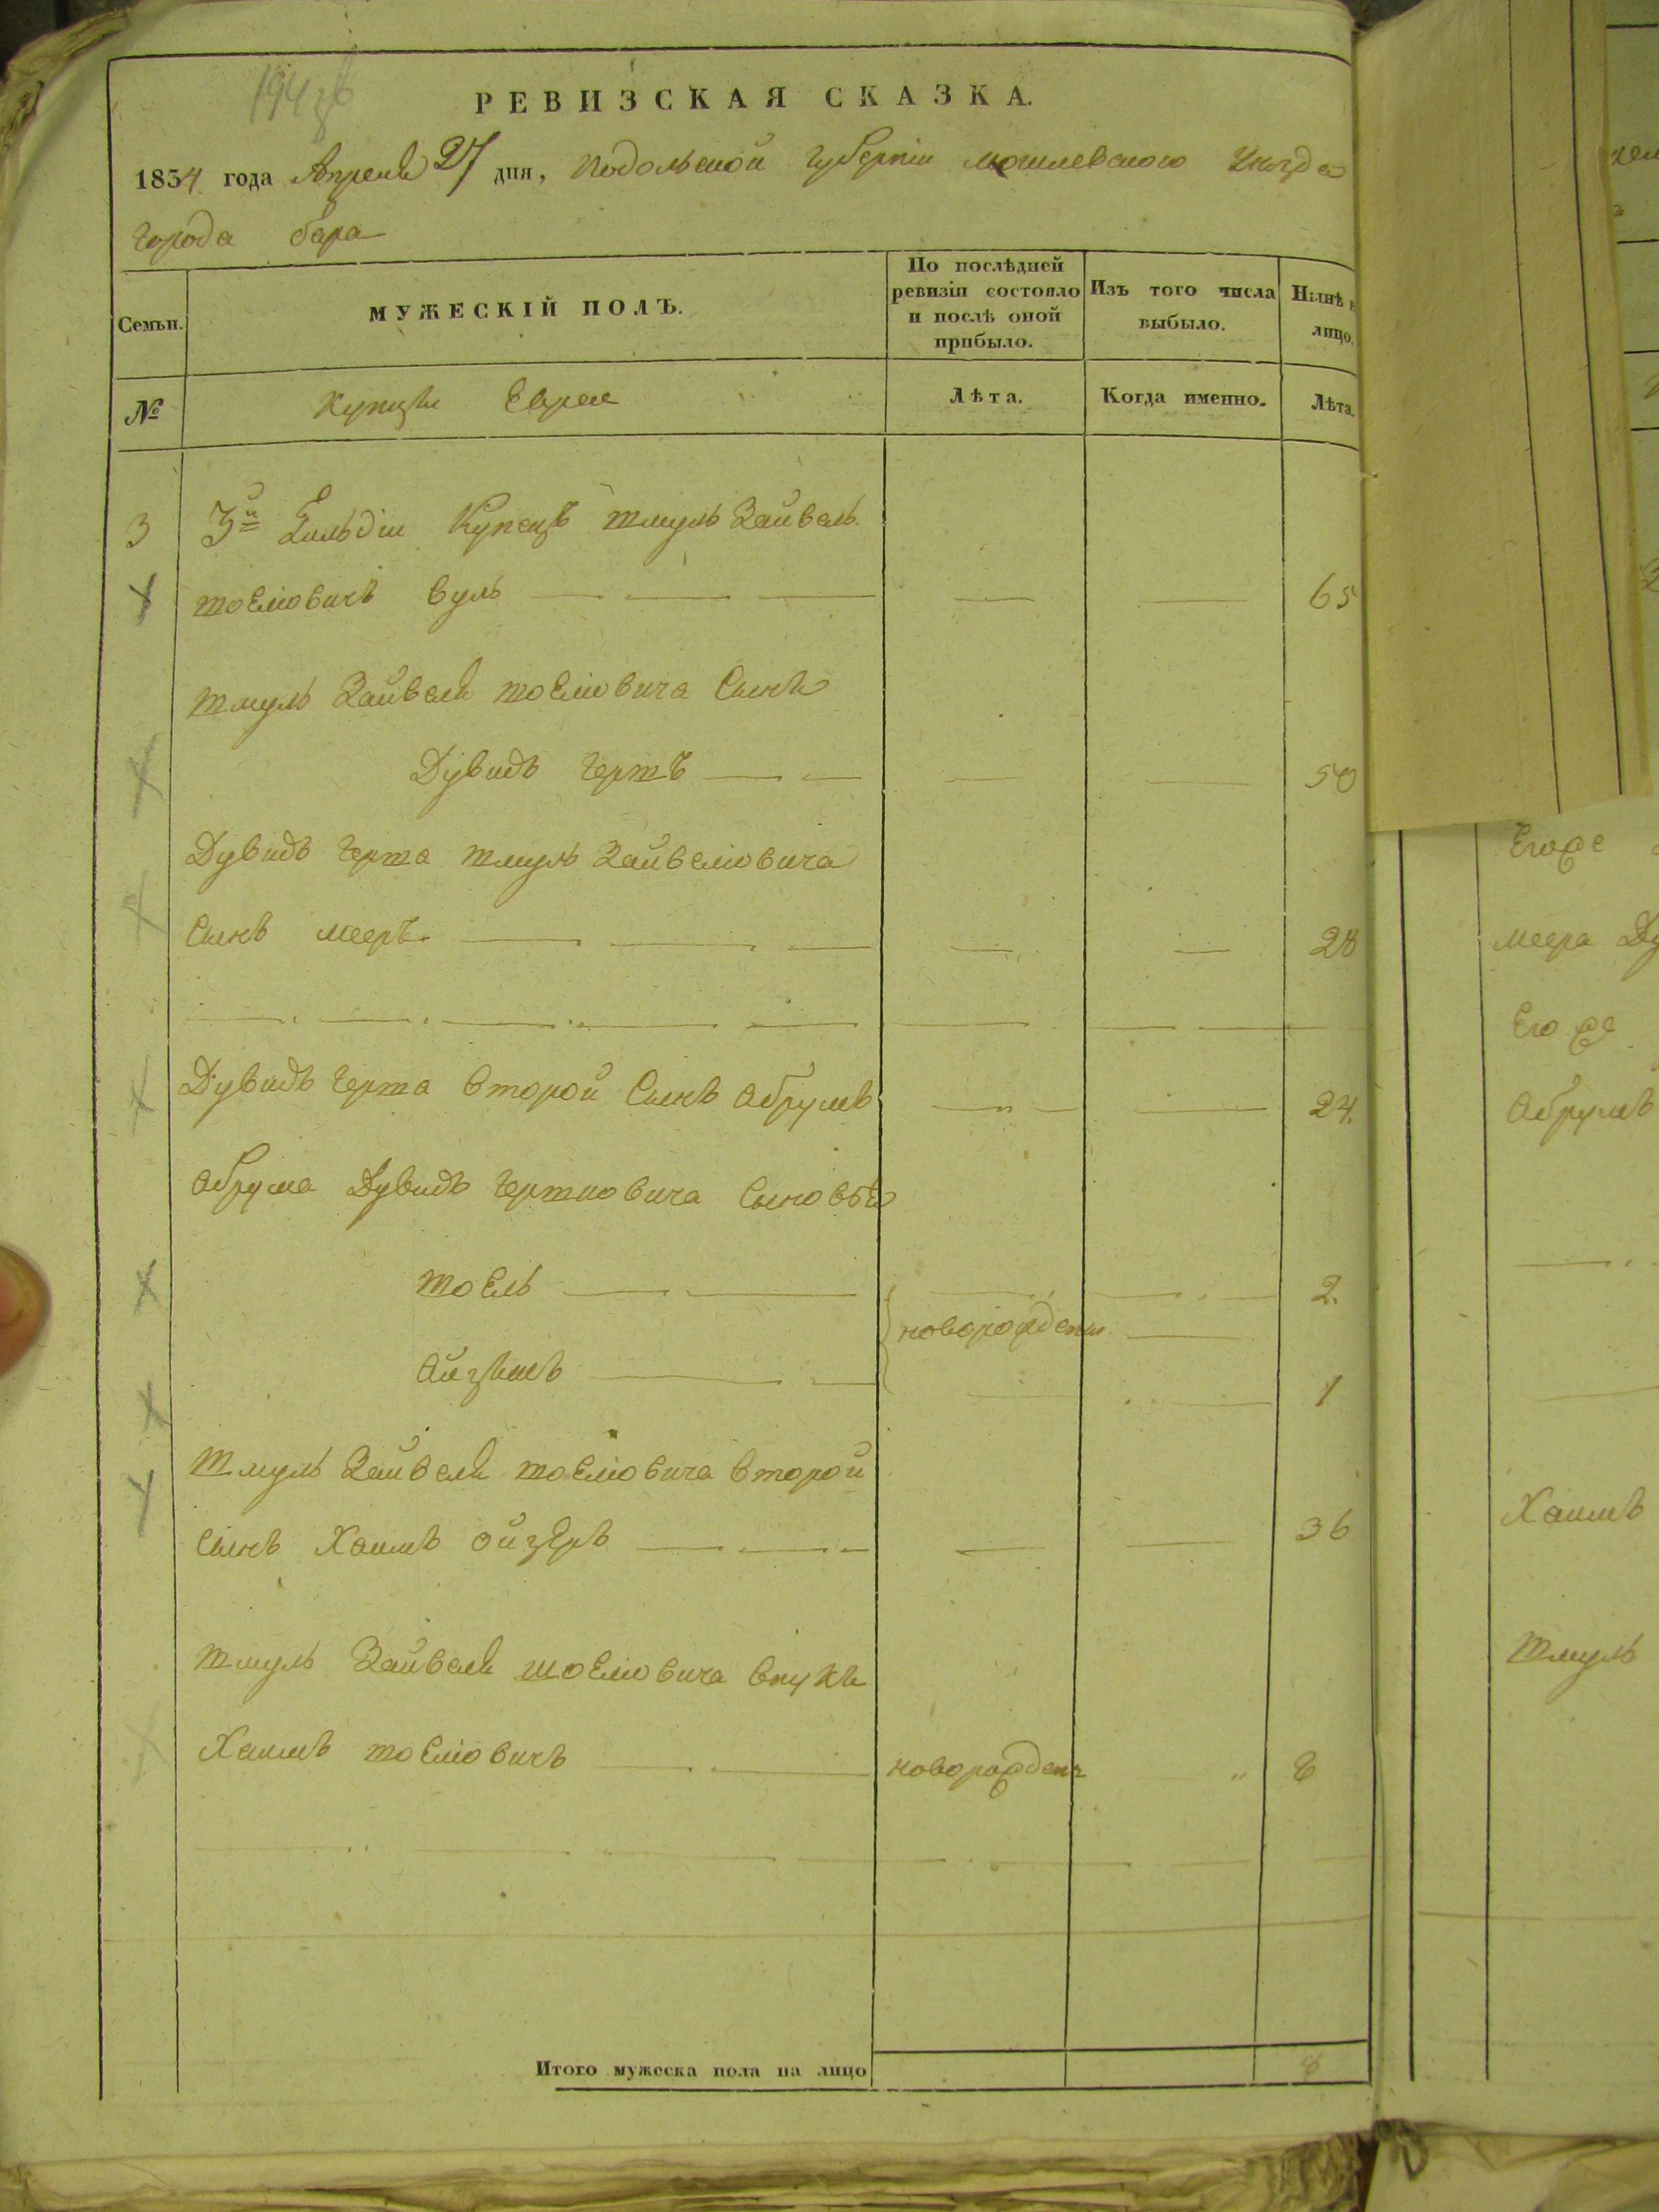 194 об
РЕВИЗСКАЯ СКАЗКА.
1854 года Апреля 27 дня, Подольской губерніи могилевского уезда
города бара
Семьи.
МУЖЕСКІЙ ПОЛЪ.
По послѣдней ревизіи состояло и послѣ оной прибыло.
Изъ того числа выбыло.
Нынѣ
лицо.
№
Купцы Евреи
Лѣта.
Когда именно.
Лѣта.
3 3й Гильдіи Купецъ Шмуль Зайвель
шоеліовичъ вуль 65
Шмуль Зайвеля шоеліовича Сынъ
Дувидъ гершъ 50
Дувидъ герша шмуль Зайвеліовича
Сынъ мееръ 28
Дувидъ герша второй Сынъ абрумъ 24.
абрума Дувидъ гершковича Сыновья
шоель 2.
новорожденны
айзыкъ 1
Шмуль Зайвеля шоеліовича второй
Сынъ Хаимъ ойзеръ 36
Шмуль Зайвеля шоеліовича внуки
Хаимъ шоеліовичъ новорожден 8
Итого мужеска пола на лицо 8
Его же
меера
Его же
абрумъ
Хаимъ
Шмуль